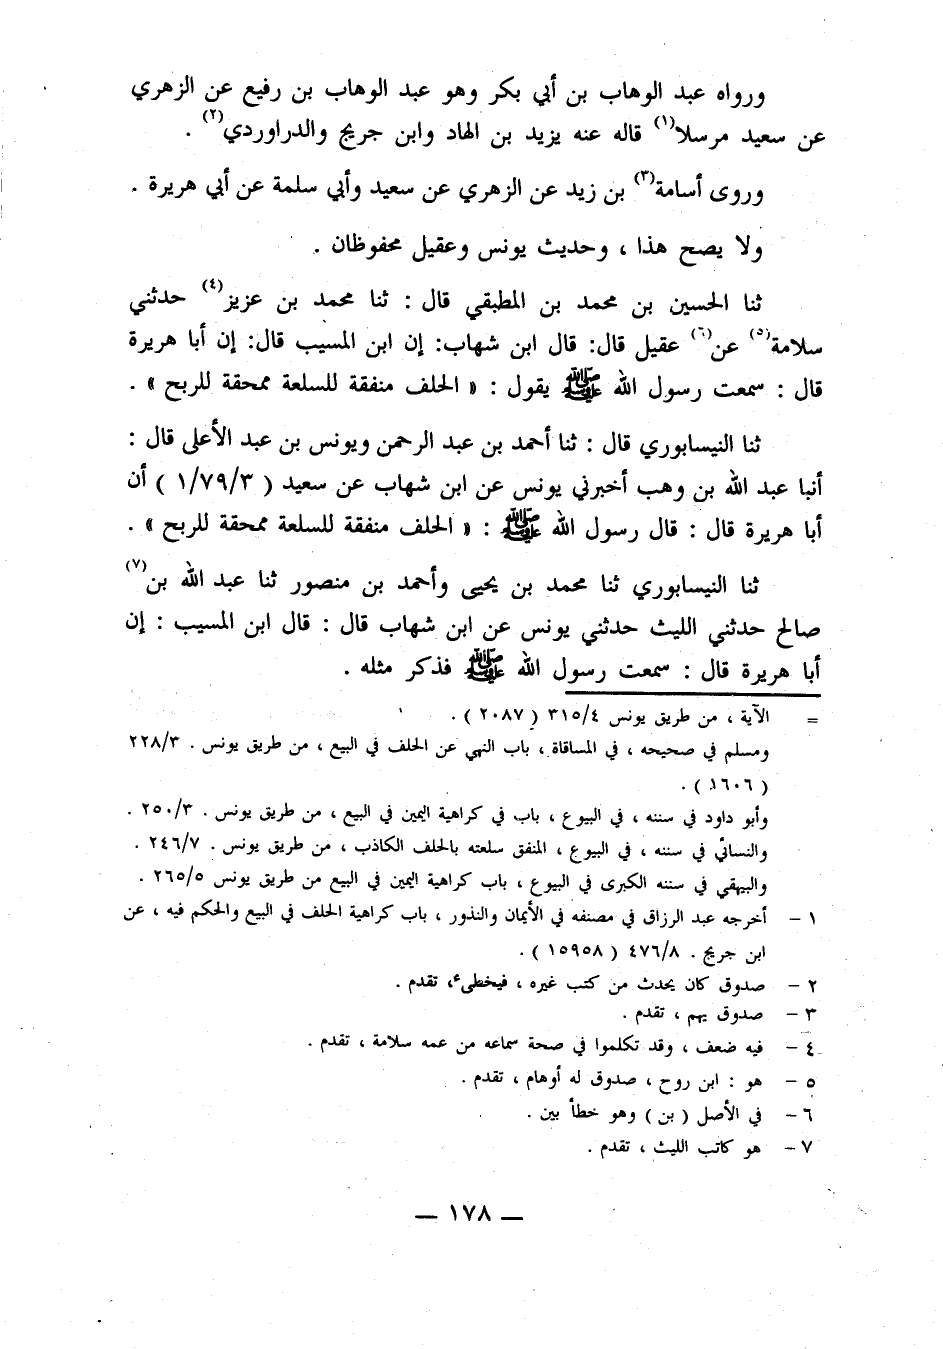 ورواه عبد الوهاب بن أبي بكر وهو عبد الوهاب بن رفيع عن الزهري
عن سعيد مرسلا(١) قاله عنه يزيد بن الهاد وابن جريج والدراوردي(٢) .
وروى أسامة(٣) بن زيد عن الزهري عن سعيد وأبي سلمة عن أبي هريرة .
ولا يصح هذا ، وحديث يونس وعقيل محفوظان .
ثنا الحسين بن محمد بن المطبقي قال : ثنا محمد بن عزيز(٤) حدثني
سلامة(٥) عن(٦) عقيل قال: قال ابن شهاب: إن ابن المسيب قال: إن أبا هريرة
قال : سمعت رسول الله ﷺ يقول : « الحلف منفقة للسلعة ممحقة للربح » .
ثنا النيسابوري قال : ثنا أحمد بن عبد الرحمن ويونس بن عبد الأعلى قال :
أنبا عبد الله بن وهب أخبرني يونس عن ابن شهاب عن سعيد ( ١/٧٩/٣ ) أن
أبا هريرة قال : قال رسول الله ﷺ : « الحلف منفقة للسلعة ممحقة للربح » .
ثنا النيسابوري ثنا محمد بن يحيى وأحمد بن منصور ثنا عبد الله بن(٧)
صالح حدثني الليث حدثني يونس عن ابن شهاب قال : قال ابن المسيب : إن
أبا هريرة قال : سمعت رسول الله ﷺ فذكر مثله .
= الآية ، من طريق يونس ٣١٥/٤ ( ٢٠٨٧ ) .
ومسلم في صحيحه ، في المساقاة ، باب النهي عن الحلف في البيع ، من طريق يونس . ٢٢٨/٣
( ١٦٠٦ ) .
وأبو داود في سننه ، في البيوع ، باب في كراهية اليمين في البيع ، من طريق يونس . ٢٥٠/٣ .
والنسائي في سننه ، في البيوع ، المنفق سلعته بالحلف الكاذب ، من طريق يونس . ٢٤٦/٧ .
والبيهقي في سننه الكبرى في البيوع ، باب كراهية اليمين في البيع من طريق يونس ٢٦٥/٥ .
١ – أخرجه عبد الرزاق في مصنفه في الأيمان والنذور ، باب كراهية الحلف في البيع والحكم فيه ، عن
ابن جريج . ٤٧٦/٨ ( ١٥٩٥٨ ) .
٢ – صدوق كان يحدث من كتب غيره ، فيخطىء، تقدم .
٣ – صدوق يهم ، تقدم .
٤ – فيه ضعف ، وقد تكلموا في صحة سماعه من عمه سلامة ، تقدم .
٥ – هو : ابن روح ، صدوق له أوهام ، تقدم .
٦ – في الأصل ( بن ) وهو خطأ بين .
٧ – هو كاتب الليث ، تقدم .
— ١٧٨ —